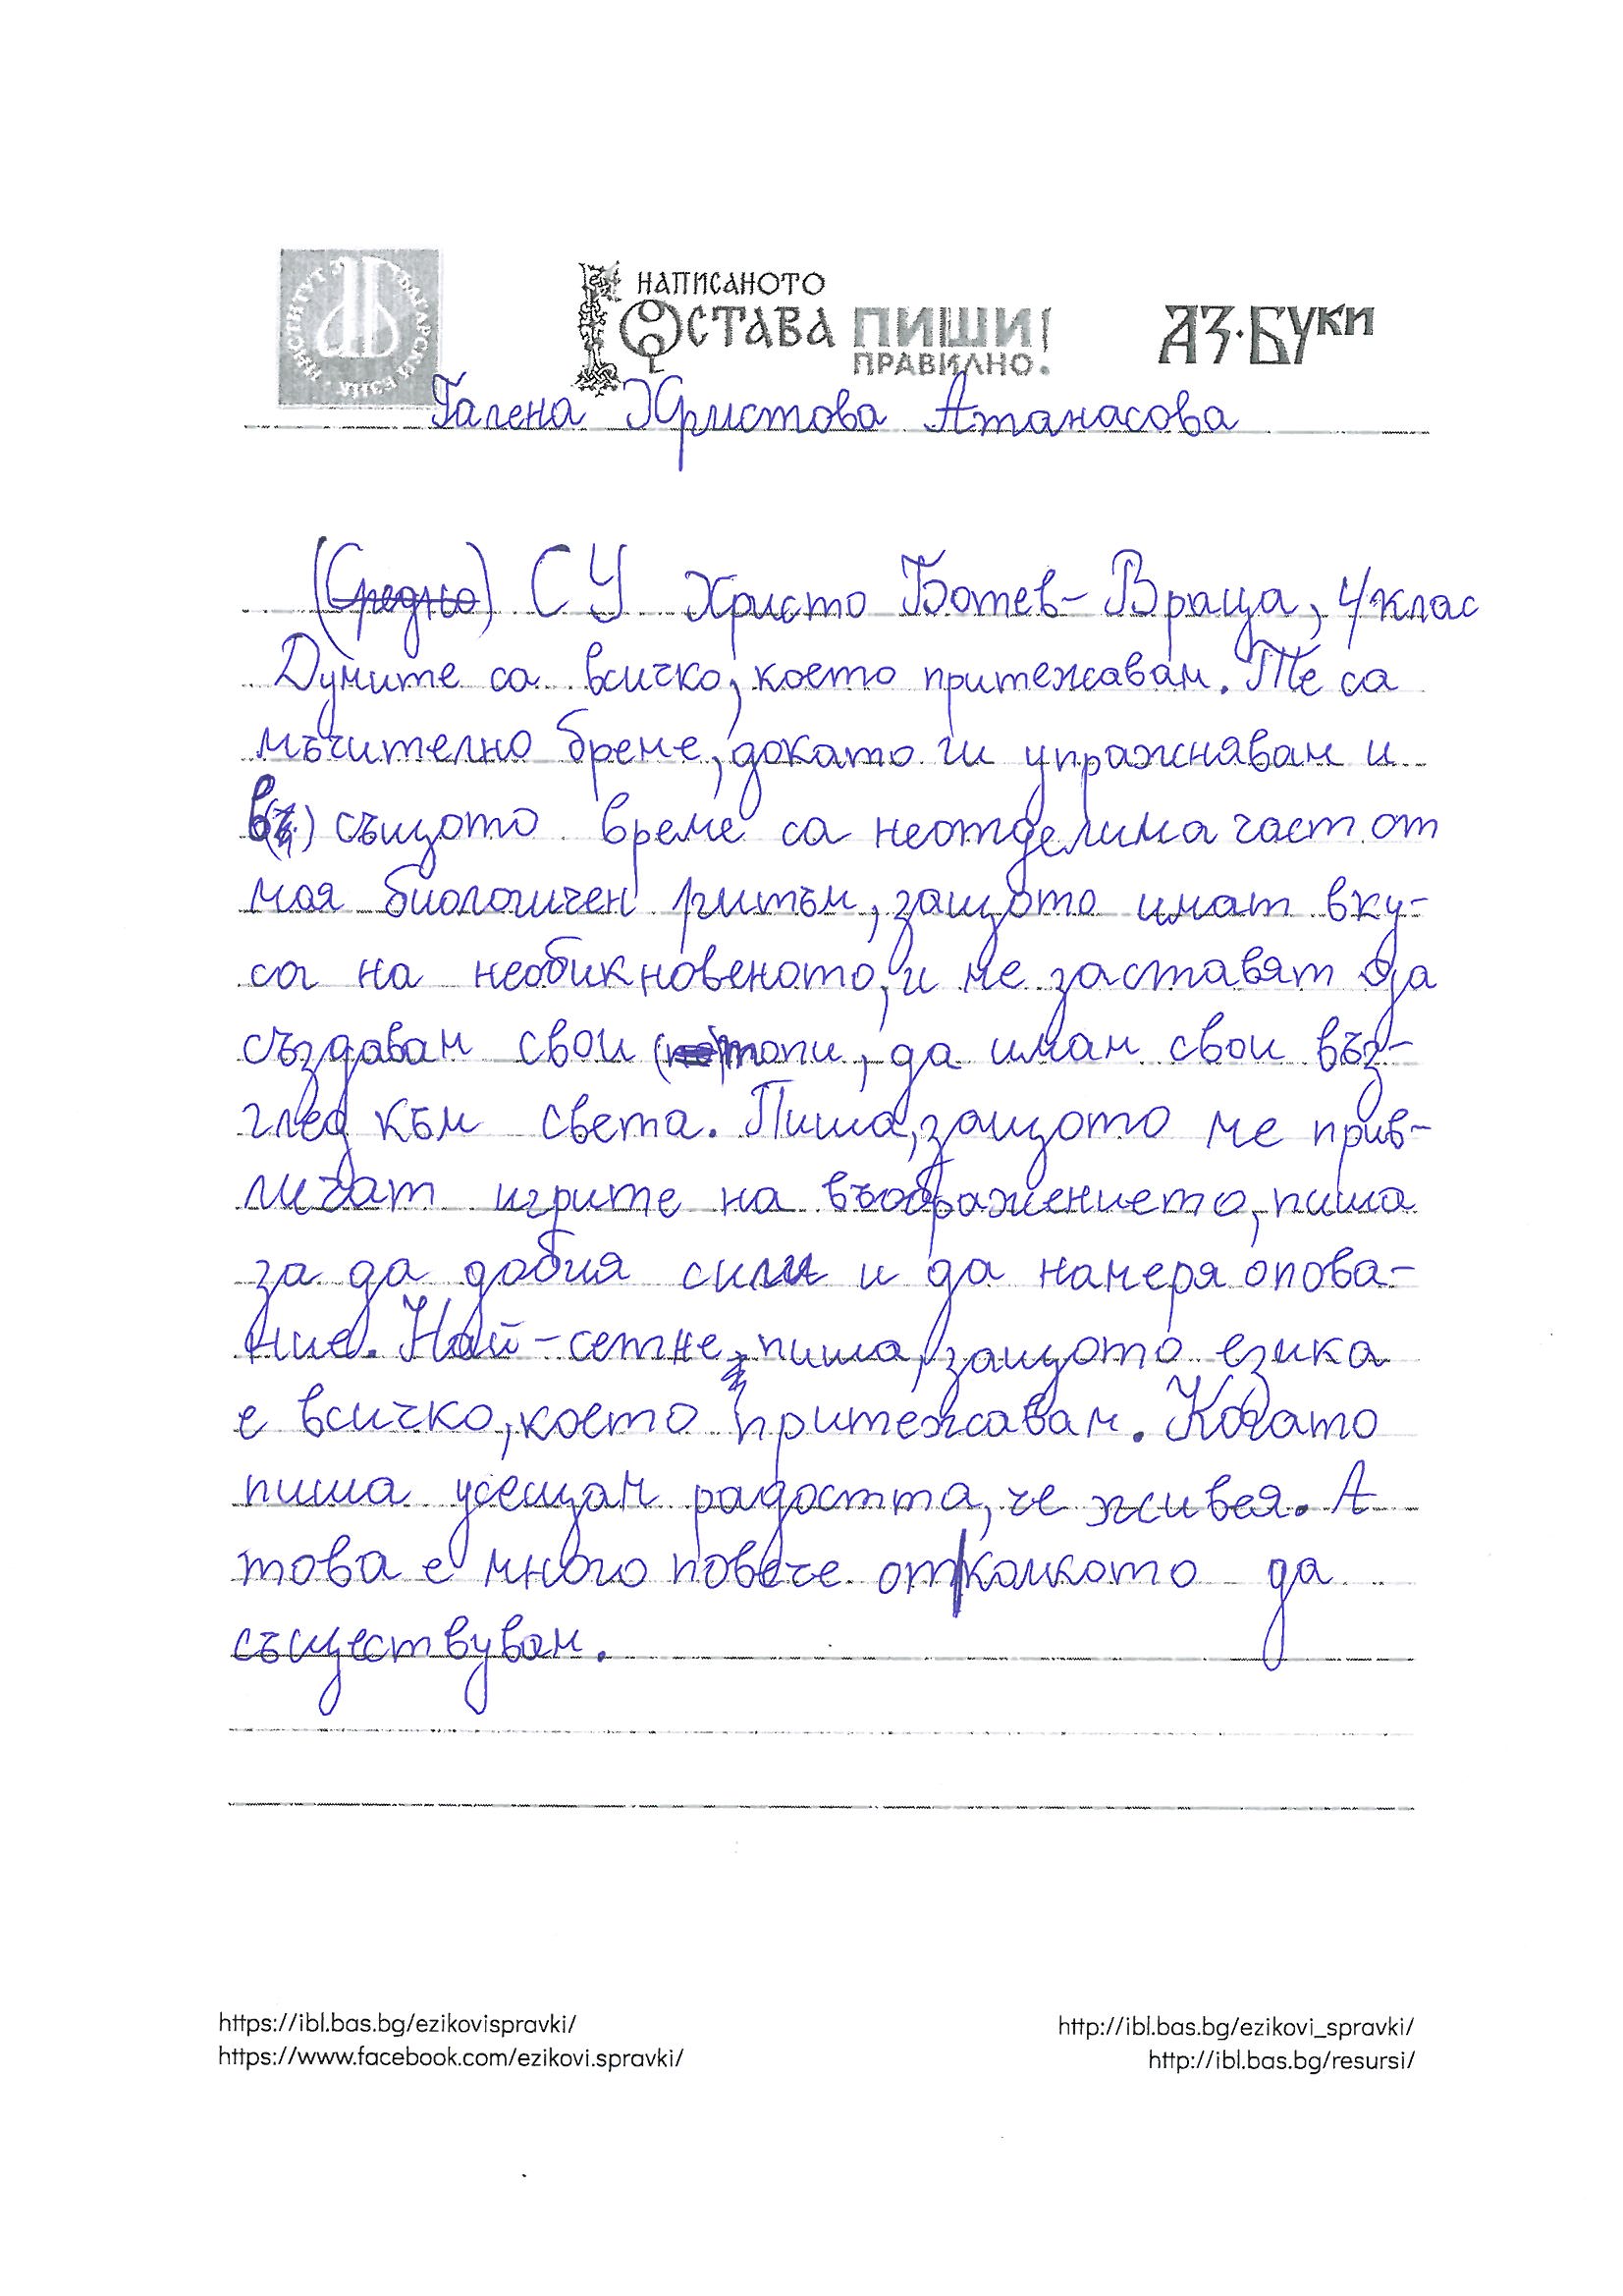 ИНСТИТУТ ЗА БЪЛГАРСКИ ЕЗИК
НАПИСАНОТО
ОСТАВА ПИШИ!
ПРАВИЛНО.
АЗ·БУКИ
Галена Христова Атанасова
(Средно) СУ Христо Ботев-Враца, 4 клас
Думите са всичко, което притежавам. Те са
мъчително бреме, докато ги упражнявам и
в същото време са неотделима част от
моя биологичен ритъм, защото имат вку-
са на необикновеното, и ме заставят да
създавам свои топи, да имам свои въз-
глед към света. Пиша, защото ме прив-
личат игрите на въображението, пиша
за да добия сили и да намеря опова-
ние. Най-сетне, пиша, защото езика
е всичко, което притежавам. Когато
пиша усещам радостта, че живея. А
това е много повече от колкото да
съществувам.
https://ibl.bas.bg/ezikovispravki/
https://www.facebook.com/ezikovi.spravki/
http://ibl.bas.bg/ezikovi_spravki/
http://ibl.bas.bg/resursi/